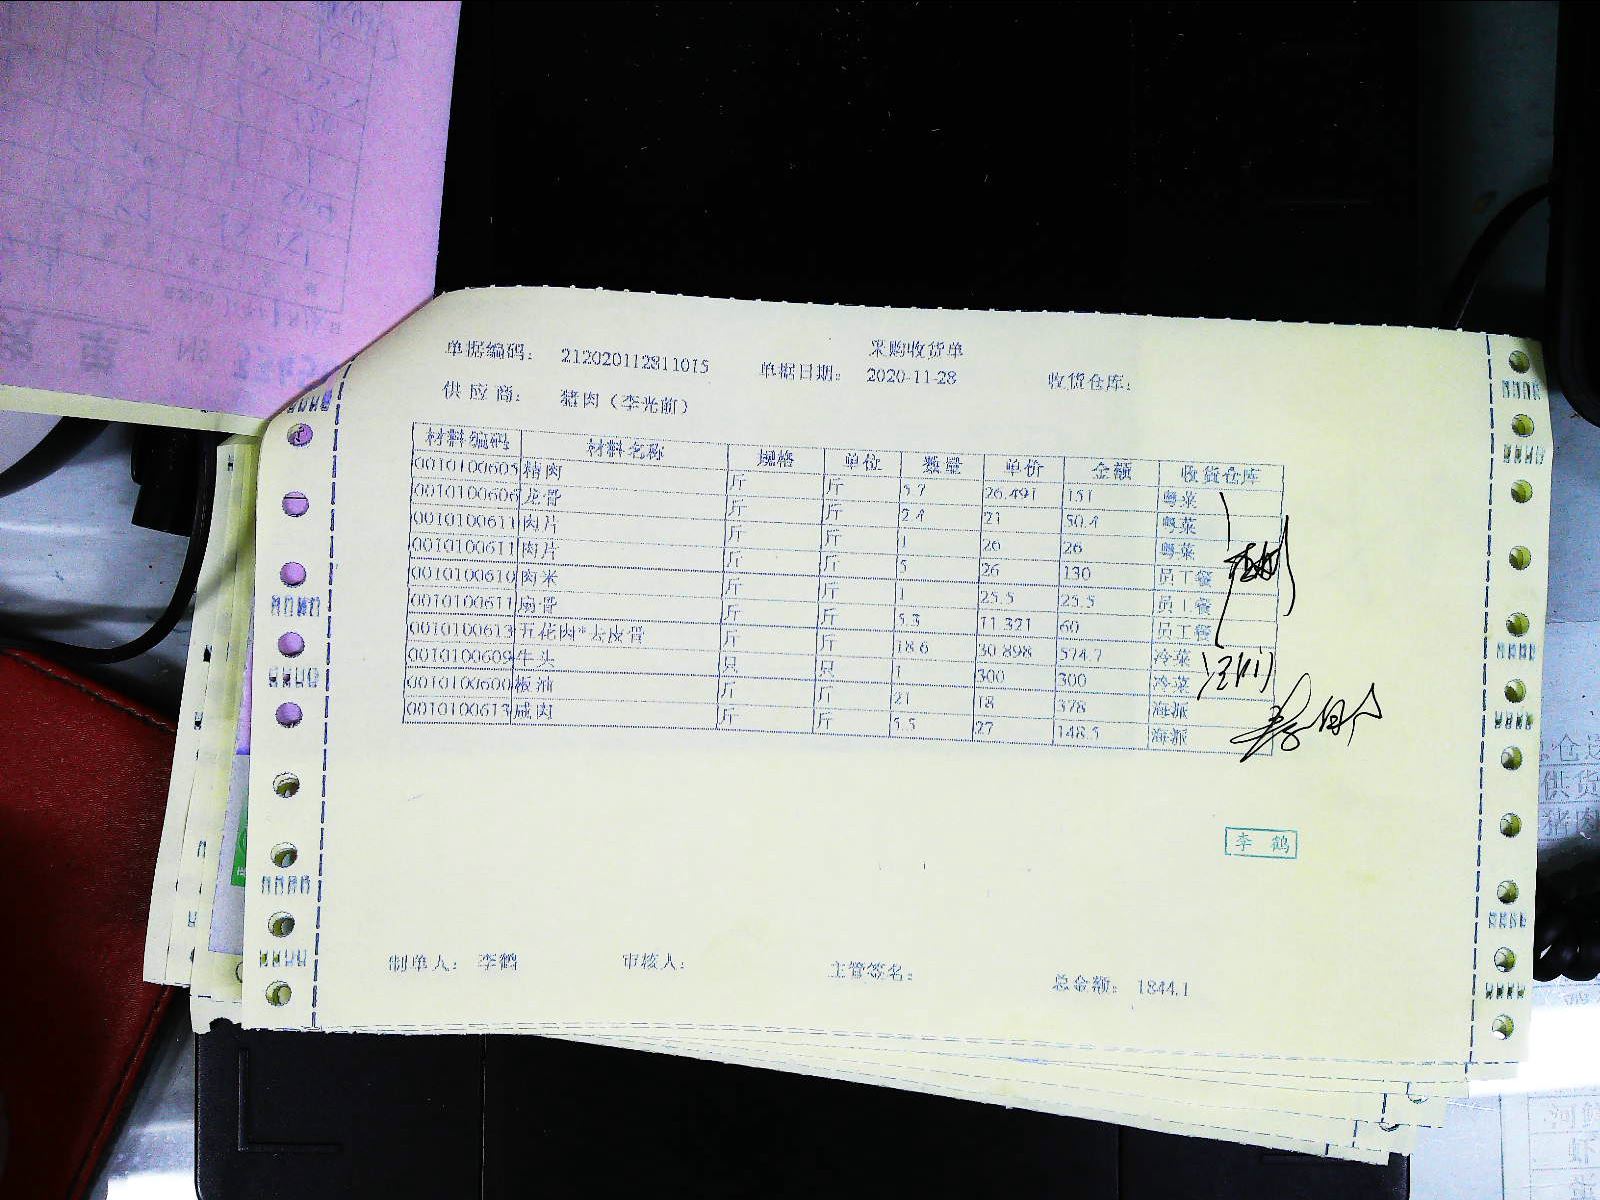 采购收货单
单据编码: 212020112811015 单据日期: 2020-11-28 收货仓库:
供应商: 猪肉(李光前)
材料编码 材料名称 规格 单位 数量 单价 金额 收货仓库
0010100605 精肉 斤 斤 5.7 26.491 151 粤菜
0010100606 龙骨 斤 斤 2.4 21 50.4 粤菜
0010100611 肉片 斤 斤 1 26 26 粤菜
0010100611 肉片 斤 斤 5 26 130 员工餐
0010100610 肉米 斤 斤 1 25.5 25.5 员工餐
0010100611 扇骨 斤 斤 5.3 11.321 60 员工餐
0010100613 五花肉*去皮骨 斤 斤 18.6 30.898 574.7 冷菜
0010100609 牛头 只 只 1 300 300 冷菜
0010100600 板油 斤 斤 21 18 378 海派
0010100613 咸肉 斤 斤 5.5 27 148.5 海派
李鹤
制单人: 李鹤 审核人: 主管签名: 总金额: 1844.1
供货
猪肉
虾